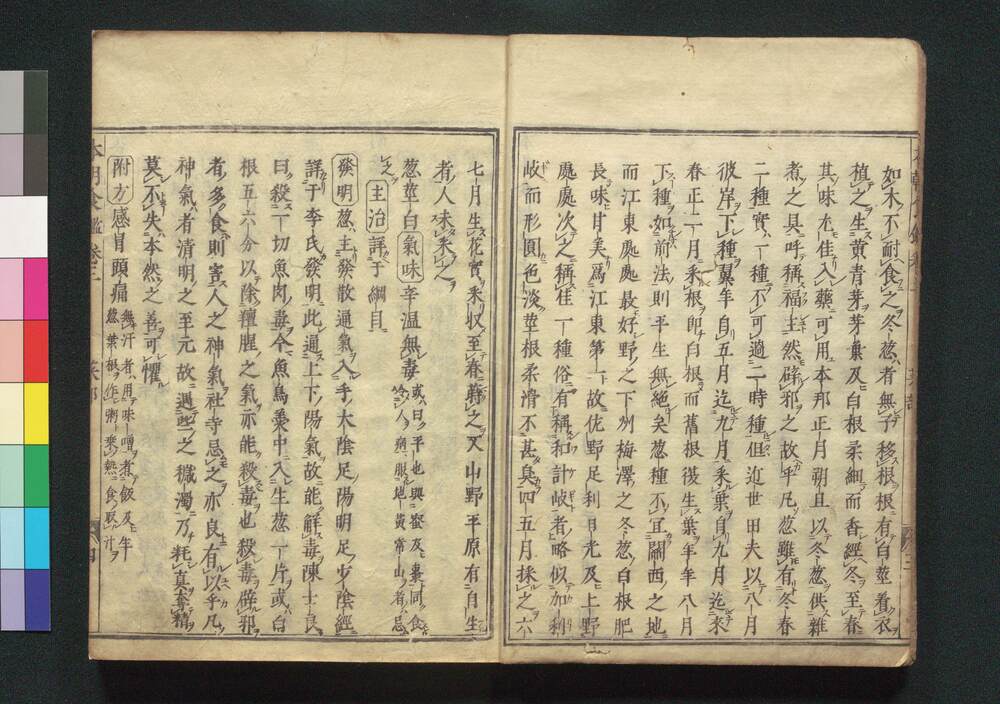 如木不耐食之冬葱者無子移根根有白莖看衣
植之生黄青芽芽葉及白根柔細而香經冬至春
其味尤佳入藥可用本邦正月朔旦以冬葱供雜
煮之具呼稱福主然辟邪之故乎凡葱雖有冬春
二種實一種不可過二時種但近世田夫以八月
彼岸下種翼年自五月迄九月采葉自九月迄來
春正二月采根即白根而舊根後生葉年年八月
下種如前法則平生無絶矣葱種不宜關西之地
而江東處處最好野之下州梅澤之冬葱白根肥
長味甘美爲江東第一故佐野足利日光及上野
處處次之稱佳一種俗有稱和計岐者略似加利
岐而形圓色淡莖根柔滑不甚臭四五月採之六
七月生花實采収至春蒔之又山野平原有自生
者人未采之
葱莖白氣味辛温無毒或曰平也與蜜及棗同食
人病服地黄常山者忌
之
主治詳于綱目
發明葱主發散通氣入手太陰足陽明足少陰經
詳于李氏發明此通上下陽氣故能解毒陳士良
曰殺一切魚肉毒今魚鳥羹中入生葱一片或白
根五六分以除羶腥之氣亦能殺毒也殺毒辟邪
者多食則害人之神氣社寺忌之亦良有以乎凡
神氣者清明之至元故遇些之穢濁乃耗真奪精
莫不失本然之善可懼
附方感冒頭痛無汗者用味噌煮飯及生
葱葉根作粥乘熱食取汁
本朝食鑑 卷三
四